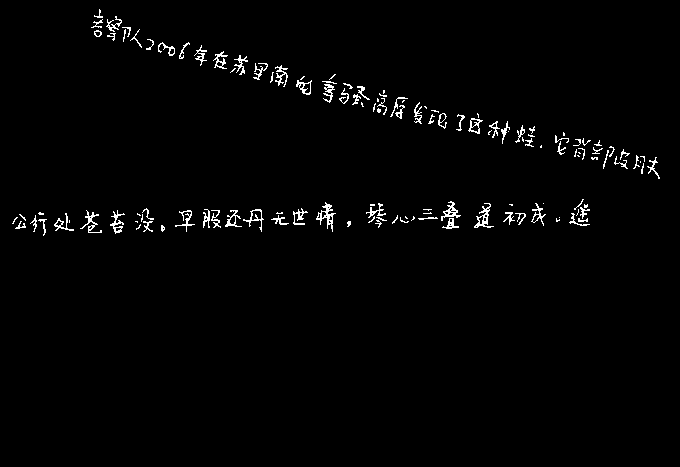 考察队2006年在苏里南的拿骚高原发现了这种蛙.它背部皮肤
公行处苍苔没。早服还丹无世情，琴心三叠道初成。遥